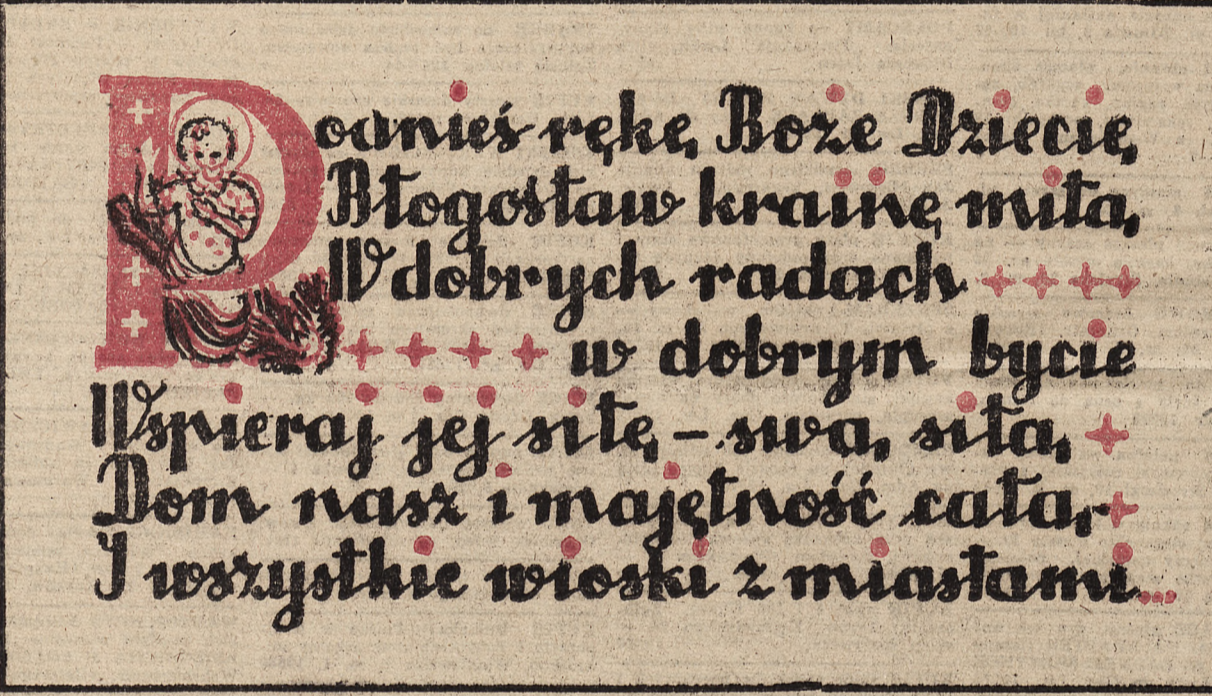 Podnieś rękę, Boże Dziecię,
Błogosław krainę miłą,
W dobrych radach
w dobrym bycie
Wspieraj jej siłę – swą, siłą,
Dom nasz i majętność całą,
I wszystkie wioski z miastami...